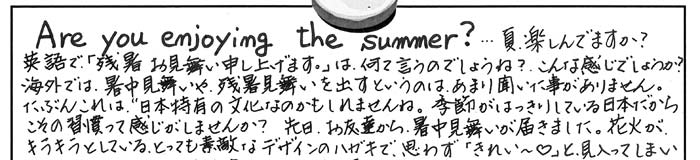 Are you enjoying the summer? … 夏、楽しんでますか?
英語で「残暑 お見舞い申し上げます。」は、何て言うのでしょうね? こんな感じでしょうか?
海外では、暑中見舞いや、残暑見舞いを出すというのは、あまり聞いた事がありません。
たぶんこれは、"日本特有の文化なのかもしれませんね。季節がはっきりしている日本だから
こその習慣って感じがしませんか? 先日、お友達から、暑中見舞いが届きました。花火が、
キラキラとしている、とっても素敵なデザインのハガキで、思わず「きれい〜♡」と、見入ってしまい